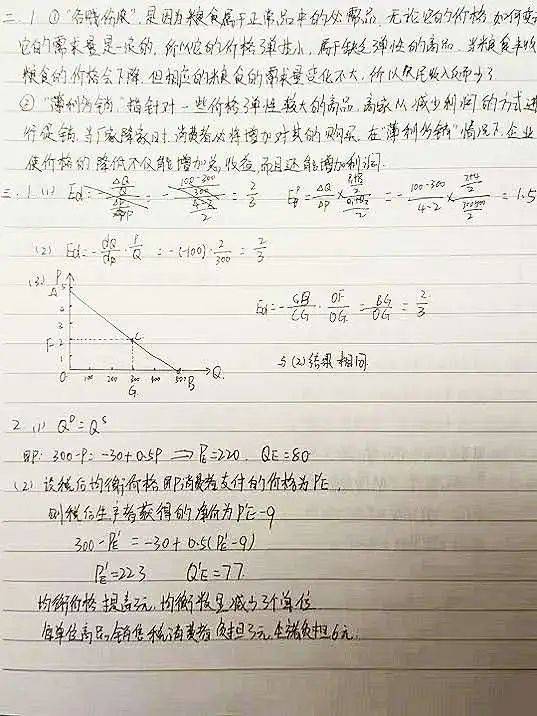 二、1. ① "谷贱伤农",是因为粮食属于正常品中的必需品,无论它的价格如何变
它的需求量是一定的,所以它的价格弹性小,属于缺乏弹性的商品,当粮食丰收
粮食的价格会下降,但相应的粮食的需求量变化不大,所以农民收入反而少了
② "薄利多销"指针对一些价格弹性较大的商品,商家以减少利润的方式进
行促销,当厂家降价时,消费者必将增加对其的购买,在"薄利多销"情况下,企业
使价格的降低不仅能增加总收益,而且还能增加利润.
三、1.(1) Ed = = 2/3 = ΔQ/ΔP × = - (100-300)/(4-2) × = 1.5
(2) Ed = - dQ/dP · P/Q = -(-100) · 2/300 = 2/3
(3) P
A 5
4
3
F 2
1
O 100 200 300 400 500 B Q
C
G
Ed = - GB/CG · OF/OG = BG/OG = 2/3
与(2)结果相同
2 (1) Q^D = Q^S
即: 300-P = -30+0.5P ⟹ PE=220, QE=80
(2) 设税后均衡价格即消费者支付的价格为P'E,
则税后生产者获得的净价为P'E-9
300-P'E = -30+0.5(P'E-9)
P'E=223 Q'E=77.
均衡价格提高3元,均衡数量减少3个单位
每单位商品销售税消费者负担3元,生产者负担6元.